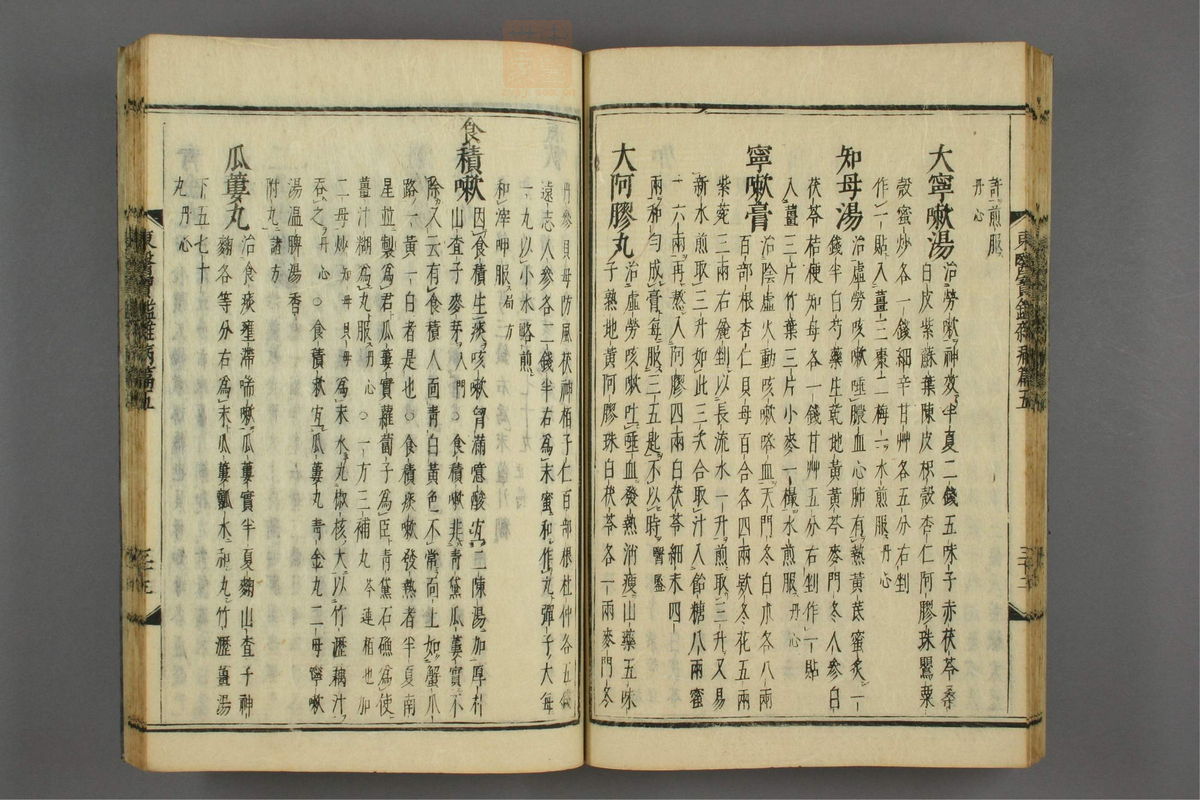 許煎服
丹心
大寧嗽湯治勞嗽神效半夏二錢五味子赤茯苓桑
白皮紫蘇葉陳皮枳殼杏仁阿膠珠罌粟
殼蜜炒各一錢細辛甘艸各五分右剉
作一貼入薑三棗二梅一水煎服丹心
知母湯治虛勞咳嗽唾膿血心肺有熱黃芪蜜炙一
錢半白芍藥生乾地黃黃芩麥門冬人參白
茯苓桔梗知母各一錢甘艸五分右剉作一貼
入薑三片竹葉三片小麥一撮水煎服丹心
寧嗽膏治陰虛火動咳嗽咯血天門冬白朮各八兩
百部根杏仁貝母百合各四兩款冬花五兩
紫菀二兩右麁剉以長流水一升煎取三升又易
新水煎取三升如此三次合取汁入飴糖八兩蜜
十六兩再熬入阿膠四兩白茯苓細末四
兩和勻成膏每服三五匙不以時醫鑑
大阿膠丸治虛勞咳嗽吐唾血發熱消瘦山藥五味
子熟地黃阿膠珠白茯苓各一兩麥門冬
丹參貝母防風茯神栢子仁百部根杜仲各五錢
遠志人參各二錢半右爲末蜜和作丸彈子大每
一丸以小水略煎
和滓呷服局方
食積嗽因食積生痰咳嗽胷滿噫酸宜二陳湯加厚朴
山査子麥芽入門○食積嗽非靑黛瓜蔞實不
除又云有食積人面靑白黃色不常面上如蟹爪
路一黃一白者是也○食積痰嗽發熱者半夏南
星並製爲君瓜蔞實蘿葍子爲臣靑黛石礁爲使
薑汁糊爲丸服丹心○一方三補丸芩連栢也加
二母炒知母貝母爲末水丸椒核大以竹瀝藕汁
吞之丹心○食積嗽宜瓜蔞丸靑金丸二母寧嗽
湯溫脾湯香
附丸諸方
瓜蔞丸治食痰壅滯喘嗽瓜蔞實半夏麴山査子神
麴各等分右爲末瓜蔞瓤水和丸竹瀝薑湯
下五七十
丸丹心